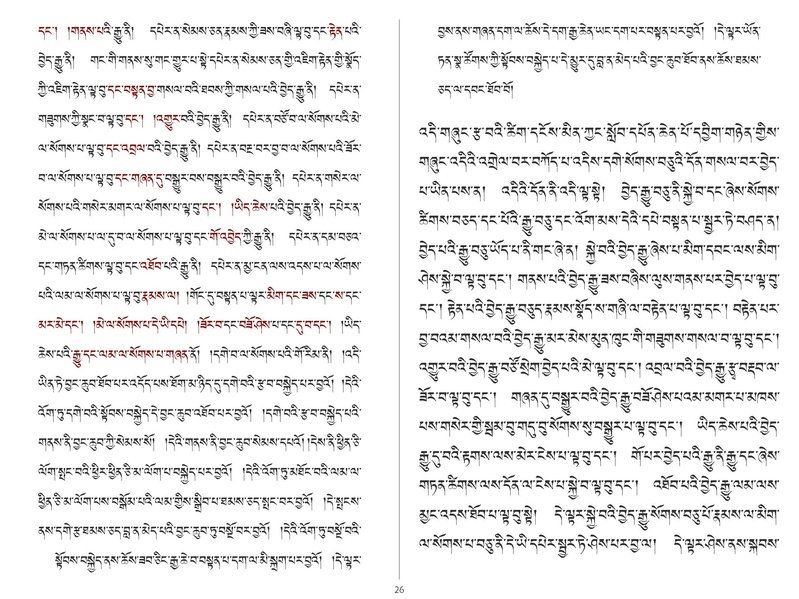 དང་། །གནས་པའི་རྒྱུ་ནི། དཔེར་ན་སེམས་ཅན་རྣམས་ཀྱི་ཟས་བཞི་ལྟ་བུ་དང་རྟེན་པའི་
བྱེད་རྒྱུ་ནི། གང་གི་གནས་སུ་གང་གྱུར་པ་སྟེ་དཔེར་ན་སེམས་ཅན་གྱི་འཇིག་རྟེན་གྱི་སྣོད་
ཀྱི་འཇིག་རྟེན་ལྟ་བུ་དང་བསྟན་བྱ་གསལ་བའི་ཐབས་ཀྱི་གསལ་བའི་བྱེད་རྒྱུ་ནི། དཔེར་ན་
གཟུགས་ཀྱི་སྣང་བ་ལྟ་བུ་དང་། །འགྱུར་བའི་བྱེད་རྒྱུ་ནི། དཔེར་ན་བཙོ་བ་ལ་སོགས་པའི་མེ་
ལ་སོགས་པ་ལྟ་བུ་དང་འབྲལ་བའི་བྱེད་རྒྱུ་ནི། དཔེར་ན་བརྔ་བར་བྱ་བ་ལ་སོགས་པའི་ཟོར་
བ་ལ་སོགས་པ་ལྟ་བུ་དང་གཞན་དུ་བསྒྱུར་བས་བསྒྱུར་བའི་བྱེད་རྒྱུ་ནི། དཔེར་ན་གསེར་ལ་
སོགས་པའི་གསེར་མགར་ལ་སོགས་པ་ལྟ་བུ་དང་། །ཡིད་ཆེས་པའི་བྱེད་རྒྱུ་ནི། དཔེར་ན་
མེ་ལ་སོགས་པ་ལ་དུ་བ་ལ་སོགས་པ་ལྟ་བུ་དང་གོ་འབྱེད་ཀྱི་རྒྱུ་ནི། དཔེར་ན་དམ་བཅའ་
དང་གཏན་ཚིགས་ལྟ་བུ་དང་འཐོབ་པའི་རྒྱུ་ནི། དཔེར་ན་མྱ་ངན་ལས་འདས་པ་ལ་སོགས་
པའི་ལམ་ལ་སོགས་པ་ལྟ་བུ་རྣམས་ལ། །གོང་དུ་བསྟན་པ་ལྟར་མིག་དང་ཟས་དང་ས་དང་
མར་མེ་དང་། །མེ་ལ་སོགས་པ་དེ་ཡི་དཔེ། །ཟོར་བ་དང་བཟོ་ཤེས་པ་དང་དུ་བ་དང་། །ཡིད་
ཆེས་པའི་རྒྱུ་དང་ལམ་ལ་སོགས་པ་གཞན་ནོ། །དགེ་བ་ལ་སོགས་པའི་གོ་རིམ་ནི། །འདི་
ཡིན་ཏེ་བྱང་ཆུབ་ཐོབ་པར་འདོད་པས་ཐོག་མ་ཉིད་དུ་དགེ་བའི་རྩ་བ་བསྐྱེད་པར་བྱའོ། །དེའི་
འོག་ཏུ་དགེ་བའི་སྟོབས་བསྐྱེད་དེ་བྱང་ཆུབ་འཐོབ་པར་བྱའོ། །དགེ་བའི་རྩ་བ་བསྐྱེད་པའི་
གནས་ནི་བྱང་ཆུབ་ཀྱི་སེམས་སོ། །དེའི་གནས་ནི་བྱང་ཆུབ་སེམས་དཔའོ། །དེས་ནི་ཕྱིན་ཅི་
ལོག་སྤང་བའི་ཕྱིར་ཕྱིན་ཅི་མ་ལོག་པ་བསྐྱེད་པར་བྱའོ། །དེའི་འོག་ཏུ་མཐོང་བའི་ལམ་ལ་
ཕྱིན་ཅི་མ་ལོག་པས་བསྒོམ་པའི་ལམ་གྱིས་སྒྲིབ་པ་ཐམས་ཅད་སྤང་བར་བྱའོ། །དེ་སྤངས་
ནས་དགེ་རྩ་ཐམས་ཅད་བླ་ན་མེད་པའི་བྱང་ཆུབ་ཏུ་བསྔོ་བར་བྱའོ། །དེའི་འོག་ཏུ་བསྔོ་བའི་
སྟོབས་བསྐྱེད་ནས་ཆོས་ཟབ་ཅིང་རྒྱ་ཆེ་བ་བསྟན་པ་དག་ལ་མི་སྐྲག་པར་བྱའོ། །དེ་ལྟར་
བྱས་ནས་གཞན་དག་ལ་ཆོས་དེ་དག་རྒྱ་ཆེན་ཡང་དག་པར་བསྟན་པར་བྱའོ། །དེ་ལྟར་ཡོན་
ཏན་སྣ་ཚོགས་ཀྱི་སྟོབས་བསྐྱེད་པ་དེ་མྱུར་དུ་བླ་ན་མེད་པའི་བྱང་ཆུབ་ཐོབ་ནས་ཆོས་ཐམས་
ཅད་ལ་དབང་ཐོབ་བོ།
འདི་གཞུང་རྩ་བའི་ཚིག་དངོས་མིན་ཀྱང་སློབ་དཔོན་ཆེན་པོ་དབྱིག་གཉེན་གྱིས་
གཞུང་འདིའི་འགྲེལ་བར་བཀོད་པ་འདིས་དགེ་སོགས་བཅུའི་དོན་གསལ་བར་བྱེད་
པ་ཡིན་པས་ན། འདིའི་དོན་ནི་འདི་ལྟ་སྟེ། བྱེད་རྒྱུ་བཅུ་ནི་སྐྱེ་བ་དང་ཞེས་སོགས་
ཚིགས་བཅད་དང་པོའི་རྒྱུ་བཅུ་དང་འོག་མས་དེའི་དཔེ་བསྟན་པ་སྦྱར་ཏེ་བཤད་ན།
བྱེད་པའི་རྒྱུ་བཅུ་ཡོད་པ་ནི་གང་ཞེ་ན། སྐྱེ་བའི་བྱེད་རྒྱུ་ཞེས་པ་མིག་དབང་ལས་མིག་
ཤེས་སྐྱེ་བ་ལྟ་བུ་དང་། གནས་པའི་བྱེད་རྒྱུ་ཟས་བཞིས་ལུས་གནས་པར་བྱེད་པ་ལྟ་བུ་
དང་། རྟེན་པའི་བྱེད་རྒྱུ་བཅུད་རྣམས་སྣོད་ས་གཞི་ལ་བརྟེན་པ་ལྟ་བུ་དང་། བརྟེན་པར་
བྱ་བའམ་གསལ་བའི་བྱེད་རྒྱུ་མར་མེས་མུན་ཁུང་གི་གཟུགས་གསལ་བ་ལྟ་བུ་དང་།
འགྱུར་བའི་བྱེད་རྒྱུ་བཙོ་སྲེག་བྱེད་པའི་མེ་ལྟ་བུ་དང་། འབྲལ་བའི་བྱེད་རྒྱུ་རྩྭ་བརྔབ་ལ་
ཟོར་བ་ལྟ་བུ་དང་། གཞན་དུ་བསྒྱུར་བའི་བྱེད་རྒྱུ་བཟོ་ཤེས་པའམ་མགར་པ་མཁས་
པས་གསེར་གྱི་སྦྲམ་བུ་གདུ་བུ་སོགས་སུ་བསྒྱུར་པ་ལྟ་བུ་དང་། ཡིད་ཆེས་པའི་བྱེད་
རྒྱུ་དུ་བའི་རྟགས་ལས་མེར་ངེས་པ་ལྟ་བུ་དང་། གོ་པར་བྱེད་པའི་རྒྱུ་ནི་རྒྱུ་དང་ཞེས་
གཏན་ཚིགས་ལས་དོན་ལ་ངེས་པ་སྐྱེ་བ་ལྟ་བུ་དང་། འཐོབ་པའི་བྱེད་རྒྱུ་ལམ་ལས་
མྱང་འདས་ཐོབ་པ་ལྟ་བུ་སྟེ། དེ་ལྟར་སྐྱེ་བའི་བྱེད་རྒྱུ་སོགས་བཅུ་པོ་རྣམས་ལ་མིག་
ལ་སོགས་པ་བཅུ་ནི་དེ་ཡི་དཔེར་སྦྱར་ཏེ་ཤེས་པར་བྱ་ལ། དེ་ལྟར་ཤེས་ནས་སྐབས་
26